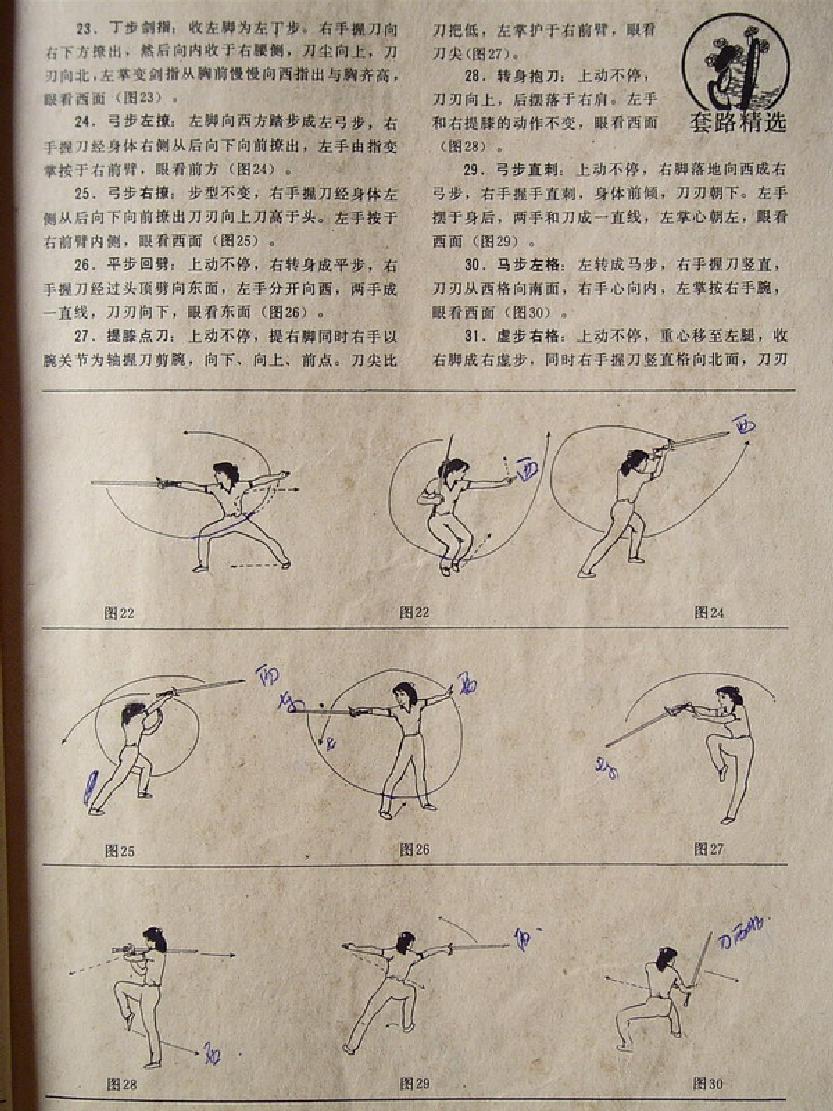 23．丁步剑指：收左脚为左丁步。右手握刀向
右下方撩出，然后向内收于右腰侧，刀尘向上，刀
刃向北，左掌变剑指从胸前慢慢向西指出与胸齐高，
眼看西面（图23）。
24．弓步左撩：左脚向西方踏步成左弓步，右
手握刀经身体右侧从后向下向前撩出，左手由指变
掌按于右前臂，眼看前方（图24）。
25．弓步右撩：步型不变，右手握刀经身体左
侧从后向下向前撩出刀刃向上刀高于头。左手按于
右前臂内侧，眼看西面（图25）。
26．平步回劈：上动不停，右转身成平步，右
手握刀经过头顶劈向东面，左手分开向西，两手成
一直线，刀刃向下，眼看东面（图26）。
27．提膝点刀：上动不停，提右脚同时右手以
腕关节为轴握刀剪腕，向下、向上、前点。刀尖比
刀把低，左掌护于右前臂，眼看
刀尖（图27）。
28．转身抱刀：上动不停，
刀刃向上，后摆落于右肩。左手
和右提膝的动作不变，眼看西面
（图28）。
29．弓步直刺：上动不停，右脚落地向西成右
弓步，右手握手直刺，身体前倾，刀刃朝下。左手
摆于身后，两手和刀成一直线，左掌心朝左，眼看
西面（图29）。
30．马步左格：左转成马步，右手握刀竖直，
刀刃从西格向南面，右手心向内，左掌按右手腕，
眼看西面（图30）。
31．虚步右格：上动不停，重心移至左腿，收
右脚成右虚步，同时右手握刀竖直格向北面，刀刃
套路精选
西
西
图22
图22
图24
西
图25
图26
图27
图28
图29
图30